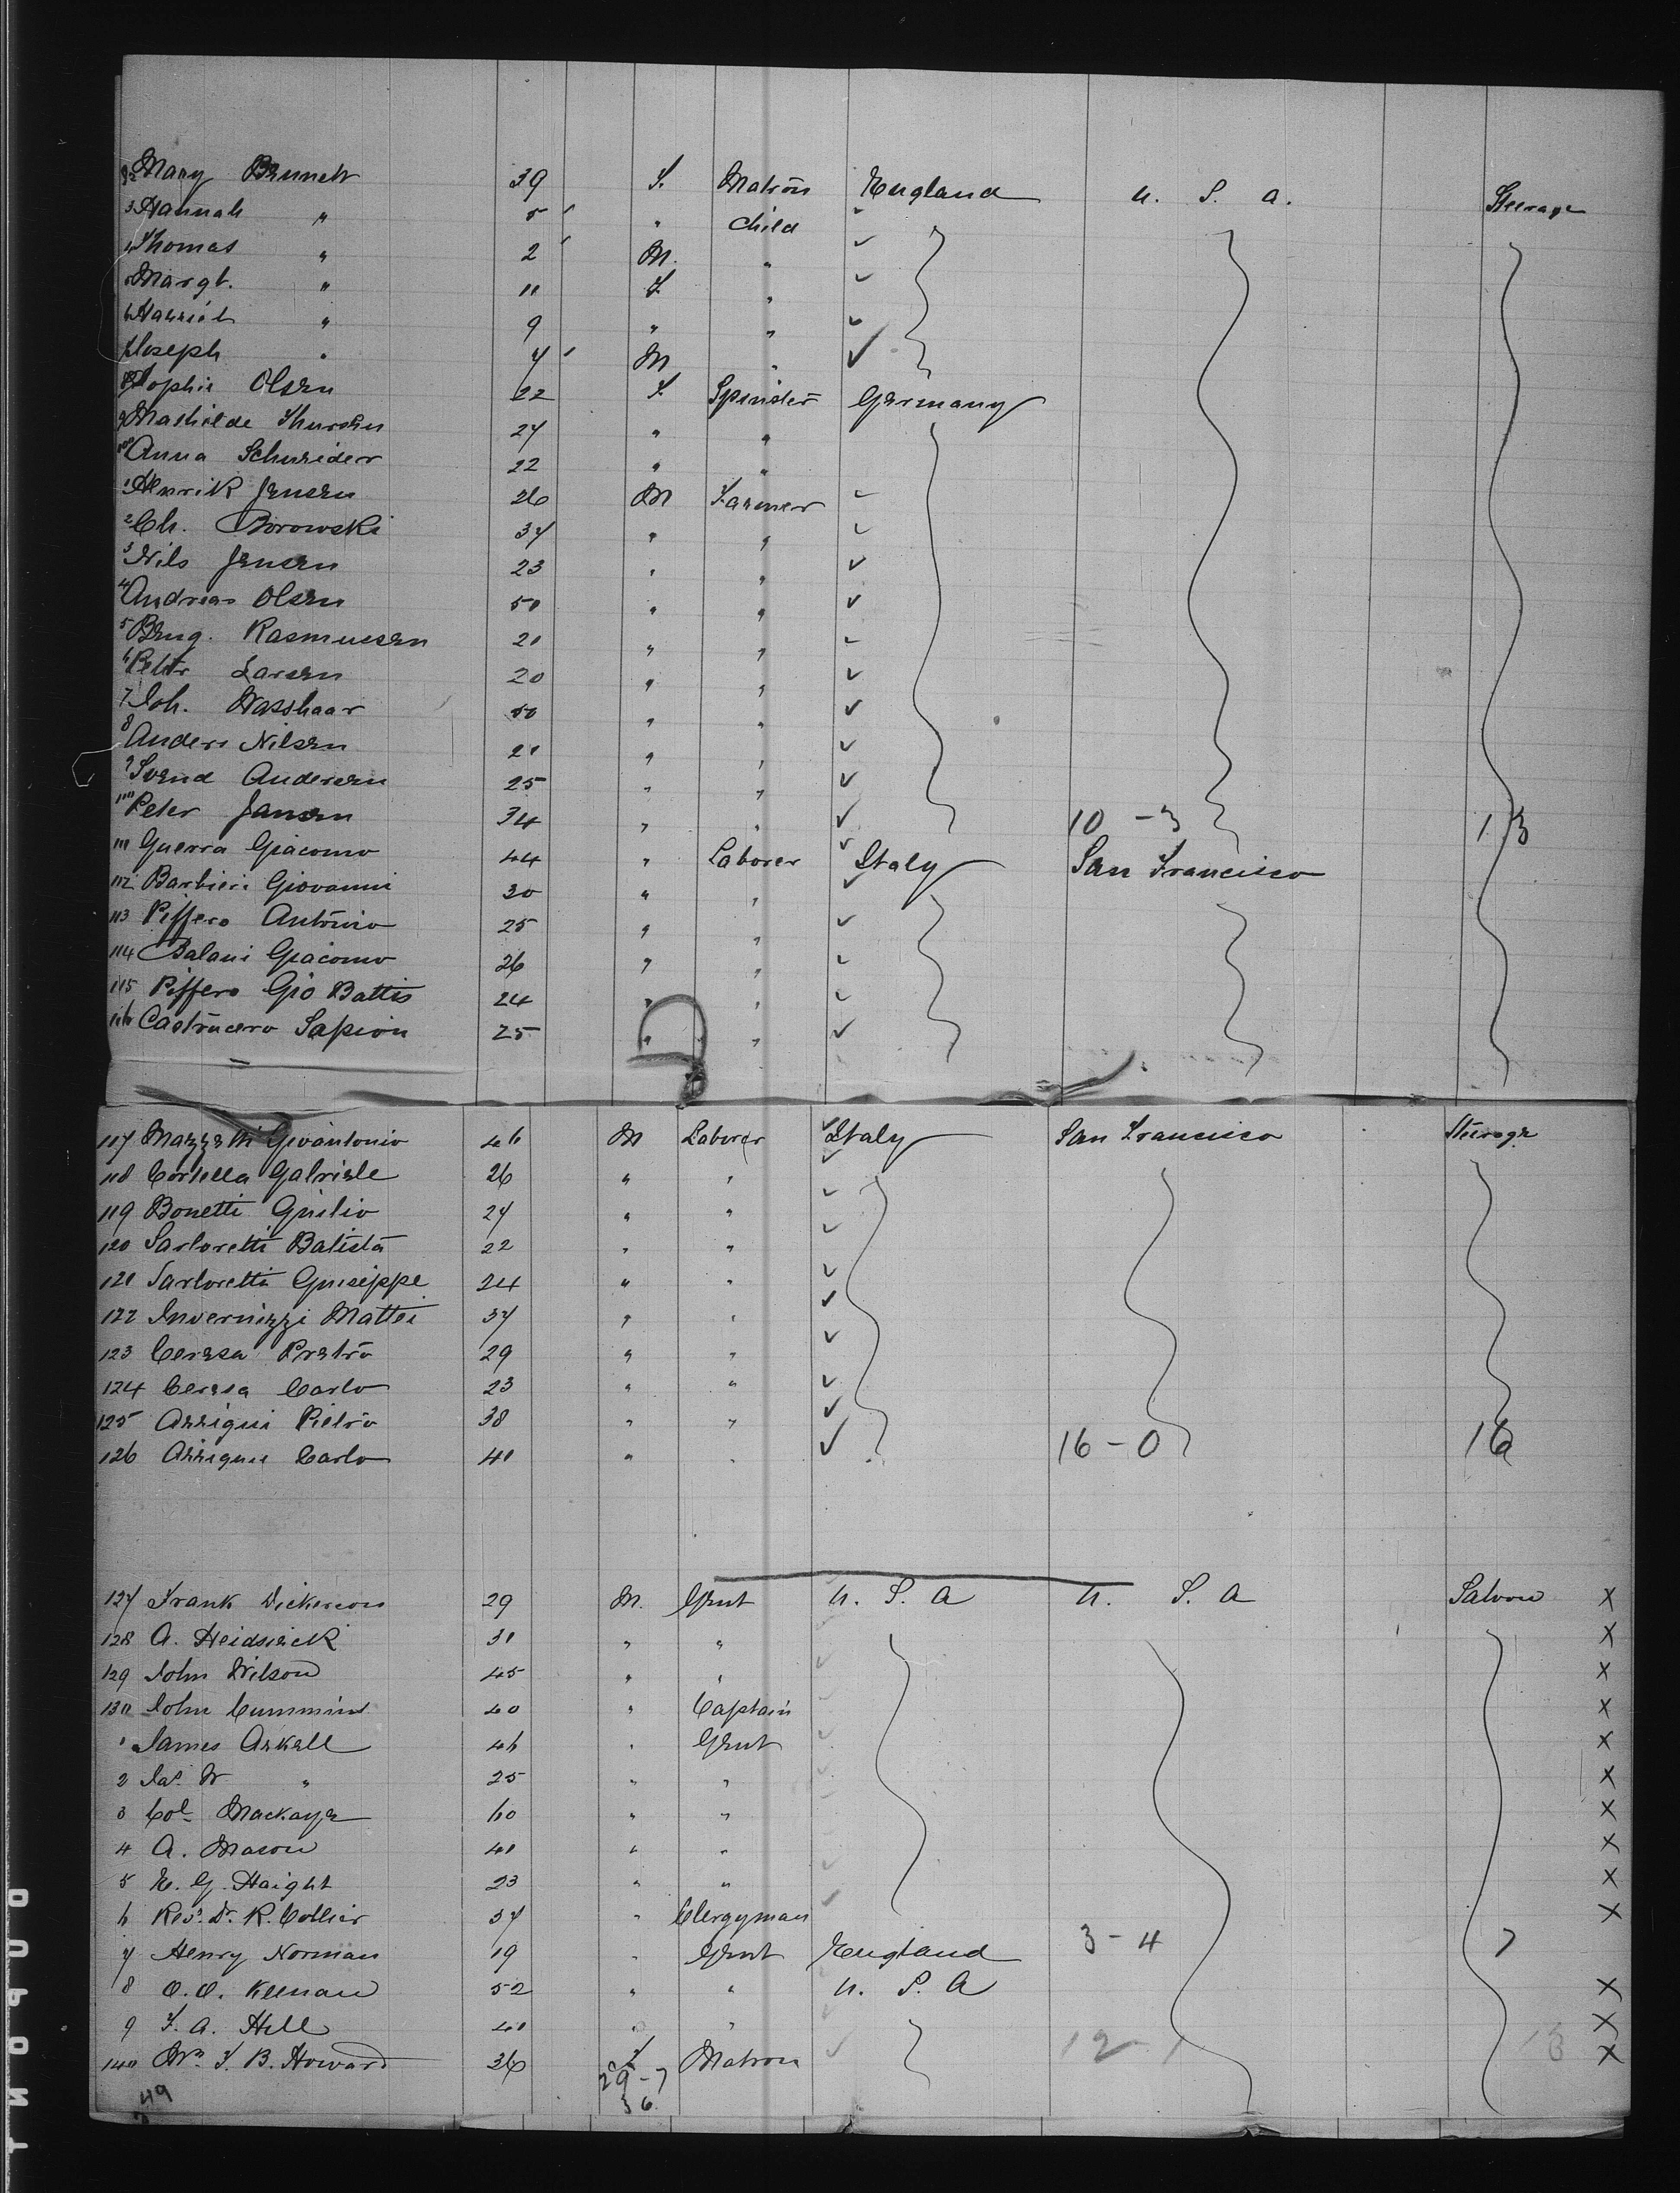 92 Mary Brunett 39 F. Matron England U. S. A. Steerage
3 Hannah " 5 " Child
4 Thomas " 2 M. "
5 Margt. " 11 F "
6 Harriet " 9 " "
7 Joseph " 7 M "
98 Sophie Olsen 22 F Spinster Germany
9 Mathilde Thursen 27 " "
100 Anna Schneider 22 " "
1 Henrik Jensen 26 M Farmer
2 Ch. Borowski 37 " "
3 Nils Jensen 23 " "
4 Andreas Olsen 50 " "
5 Beng. Rasmussen 21 " "
6 Peter Larsen 20 " "
7 Joh. Wasshaar 50 " "
8 Anders Nilsen 21 " "
9 Svend Andersen 25 " "
110 Peter Jansen 34 " " 10 - 3 13
111 Guerra Giacomo 44 " Laborer Italy San Francisco
112 Barbieri Giovanni 30 " "
113 Piffero Antonio 25 " "
114 Balani Giacomo 26 " "
115 Piffero Gio Battis 24 " "
116 Castrucero Sapion 25 " "
117 Mazzetti Giovantonio 46 M Laborer Italy San Francisco Steerage
118 Cortella Gabriele 26 " "
119 Bonetti Guilio 27 " "
120 Sartoretti Batista 22 " "
121 Sartoretti Guiseppe 24 " "
122 Invernizzi Mattei 37 " "
123 Ceresa Pietro 29 " "
124 Ceresa Carlo 23 " "
125 Arrigui Pietro 38 " "
126 Arrigui Carlo 41 " " 16 - 0 16
127 Frank Dickerson 29 M. Gent U. S. A U. S. A Saloon X
128 A. Heidsieck 31 " " X
129 John Wilson 45 " " X
130 John Cummins 40 " Captain X
1 James Arkell 46 " Gent X
2 Jas. W " 25 " " X
3 Col. Mackaye 60 " " X
4 A. Mason 41 " " X
5 E. G. Haight 23 " " X
6 Rev. Dr. R. Collier 37 " Clergyman X
7 Henry Norman 19 " Gent England 3 - 4 7
8 O. O. Keenan 52 " " U. S. A X
9 F. A. Hill 41 " " X
140 Mrs. F. B. Howard 36 F Matron 12 - 1 13 X
29 - 7
49 36